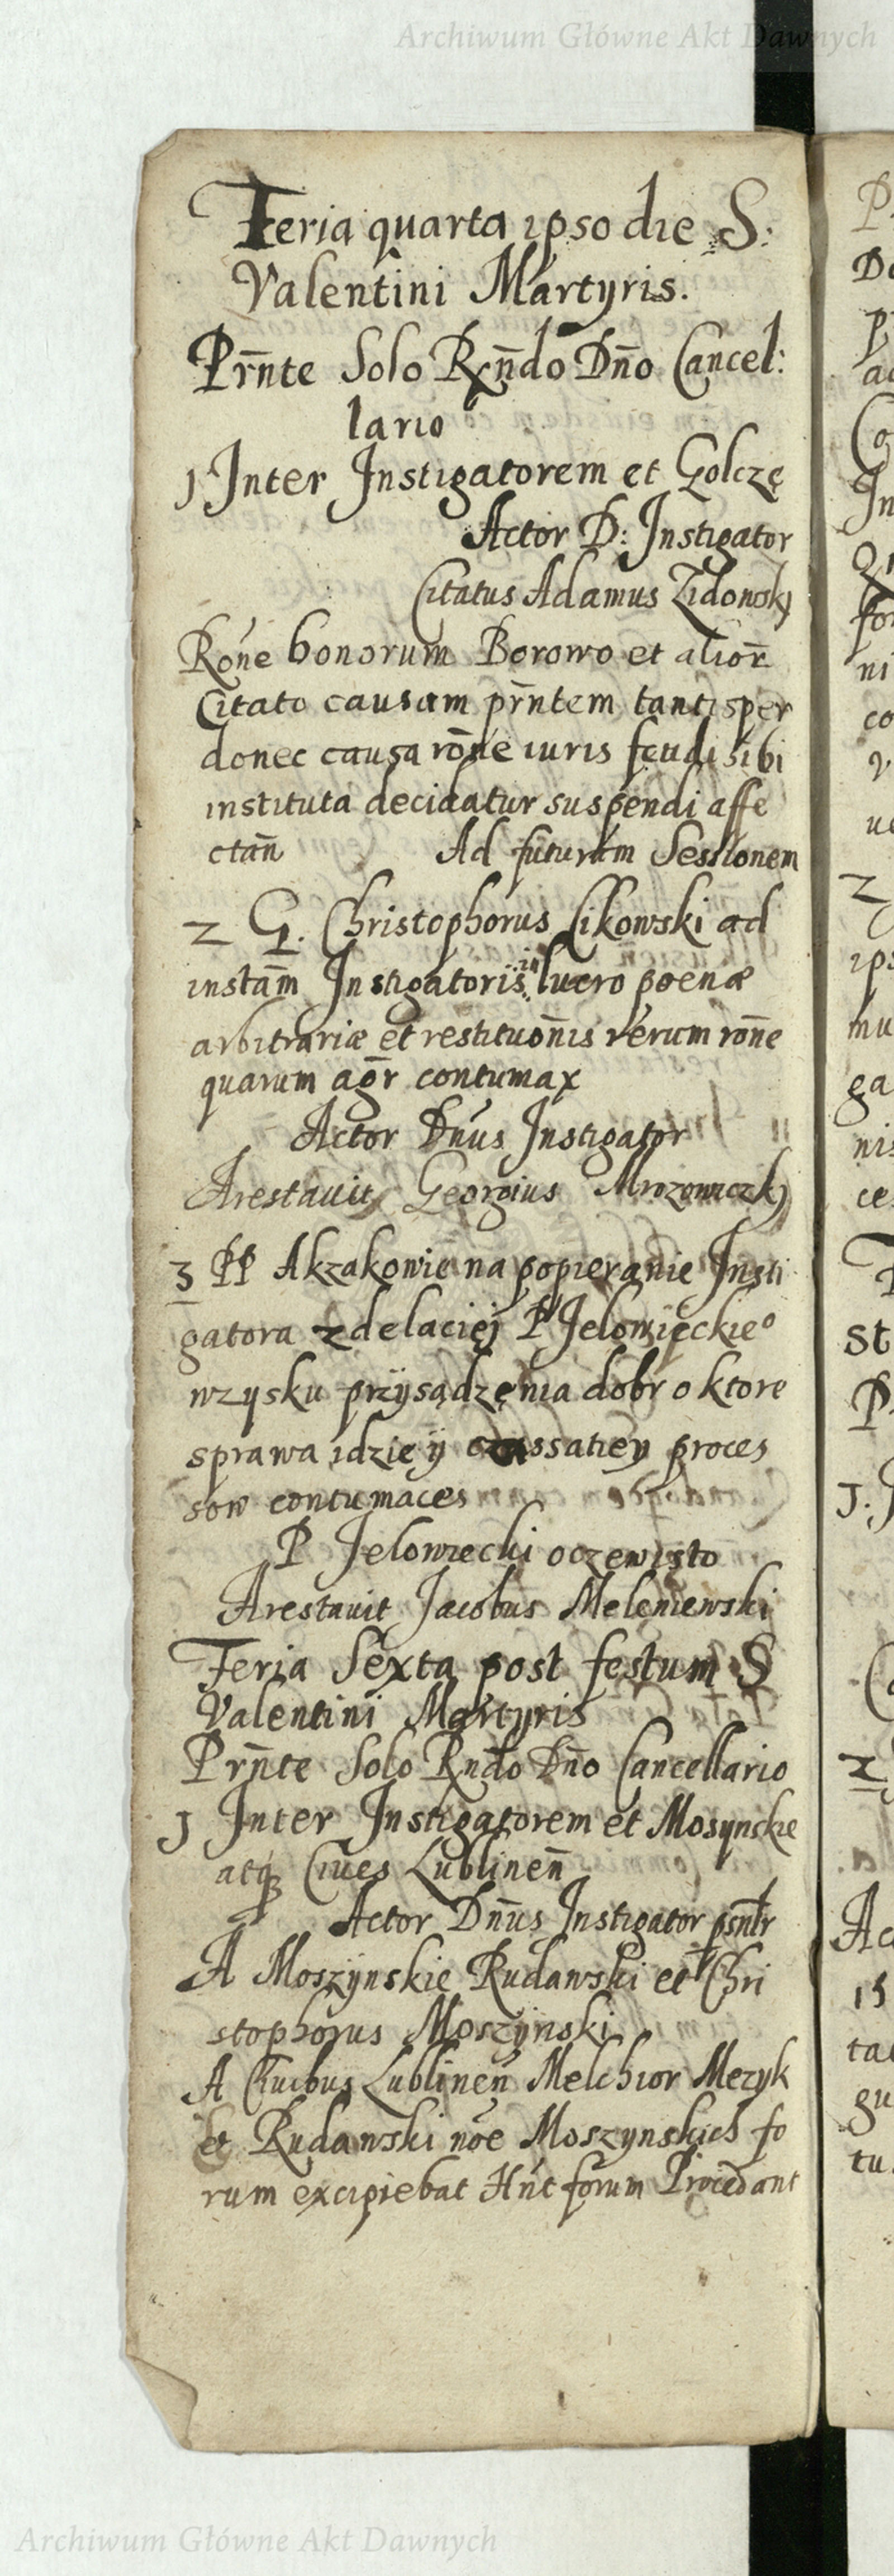 Archiwum Główne Akt Dawnych
Feria quarta ipso die S:
Valentini Martyris.
Prn̄te Solo Rn̄do Dn̄o Cancel:
lario
1 Inter Instigatorem et Golczę
Actor D: Instigator
Citatus Adamus Zidowskj
Rōne bonorum Borowo et alior̄
Citato causam prn̄tem tantisper
donec causa rōne iuris feudi sibi
instituta decidatur suspendi affe
ctan̄ Ad futuram Sessionem
2 G. Christophorus Cikowski ad
instam̄ Instigatoris in lucro poenæ
arbitrariæ et restituōnis rerum rōne
quarum agr̄ contumax
Actor Dn̄us Instigator
Arestauit Georgius Mrozowiczkj
3 PP Akzakowie na popieranie Insti
gatora z delaciej P Jelowięckieº
wzysku przÿsądzęnia dobr o ktore
sprawa idzie ÿ cassatiey proces
sow contumaces
P Jelowiecki oczewisto
Arestauit Jacobus Meleniewski
Feria Sexta post festum S
Valentini Martyris
Prn̄te Solo Rn̄do Dn̄o Cancellario
1 Inter Instigatorem et Mosynskie
atq̨ Ciues Lublinen̄
Actor Dn̄us Instigator psn̄lr
A Moszÿnskie Rudawski et Chri
stophorus Moszÿnski
A Ciuibus Lublinen̄ Melchior Mezyk
et Rudawski nōe Moszynskich fo
rum excipiebat Hn̄t forum Procedant
Archiwum Główne Akt Dawnych